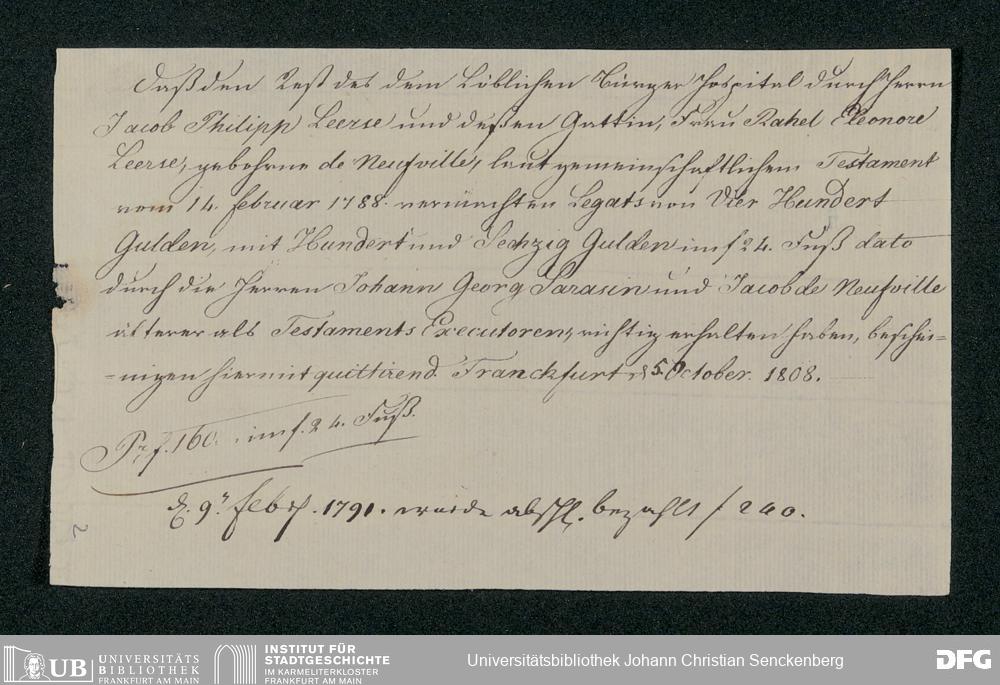 Daß den Rest des dem Löblichen Bürger Hospital durch Herrn
Jacob Philipp Leerse und deßen Gattin, Frau Rahel Eleonore
Leerse, gebohrne de Neufville, laut gemeinschaftlichem Testament
vom 14. Februar 1788. vermachten Legats von Vier Hundert
Gulden, mit Hundert und Sechzig Gulden im f 24. Fuß dato
durch die Herren Johann Georg Sarasin und Jacob de Neufville
älterer als Testaments Executoren, richtig erhalten haben, beschei=
=nigen hiermit quittirend. Franckfurt d 5 October. 1808.
Pr. f. 160. im f. 24. Fuß.
d. 9. Febr. 1791. wurde abschl. bezahlt f 240.
2
UB UNIVERSITÄTS
BIBLIOTHEK
FRANKFURT AM MAIN
INSTITUT FÜR
STADTGESCHICHTE
IM KARMELITERKLOSTER
FRANKFURT AM MAIN
Universitätsbibliothek Johann Christian Senckenberg
DFG